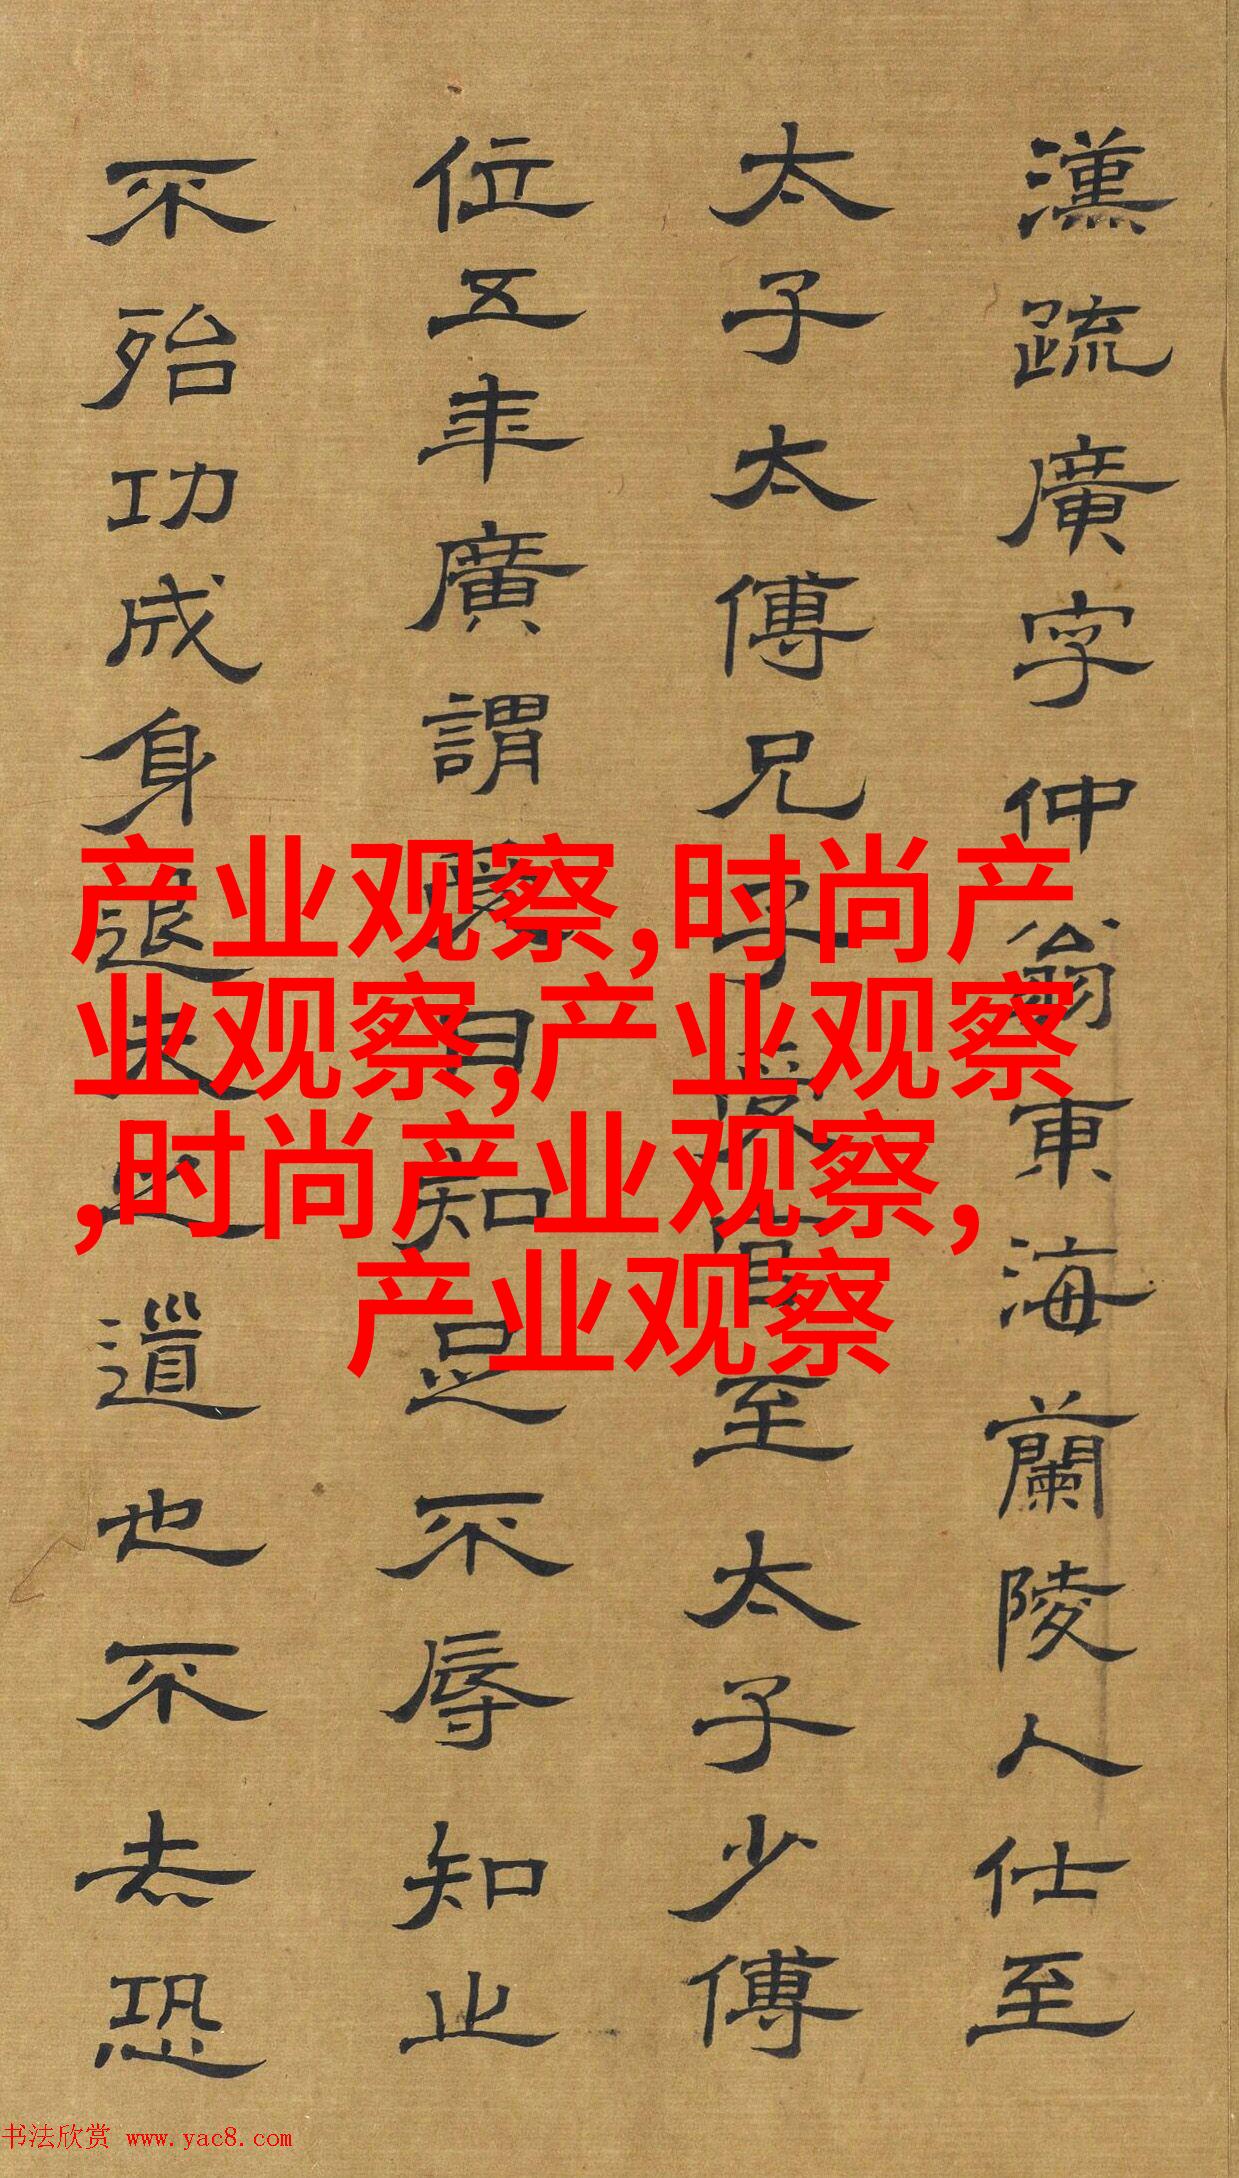 漢疏廣字仲翁東海蘭陵人仕至
太子太傅兄子受官至太子少傅
位五年廣謂受曰知足不辱知止
不殆功成身退天之道也不去恐
产业观察,时尚产
业观察,产业观察
,时尚产业观察,
产业观察
书法欣赏 www.yac8.com